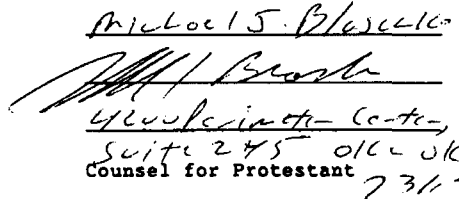 Michael J. Blaschke
4200 Perimeter Center,
Suite 245 OKC OK
Counsel for Protestant
731